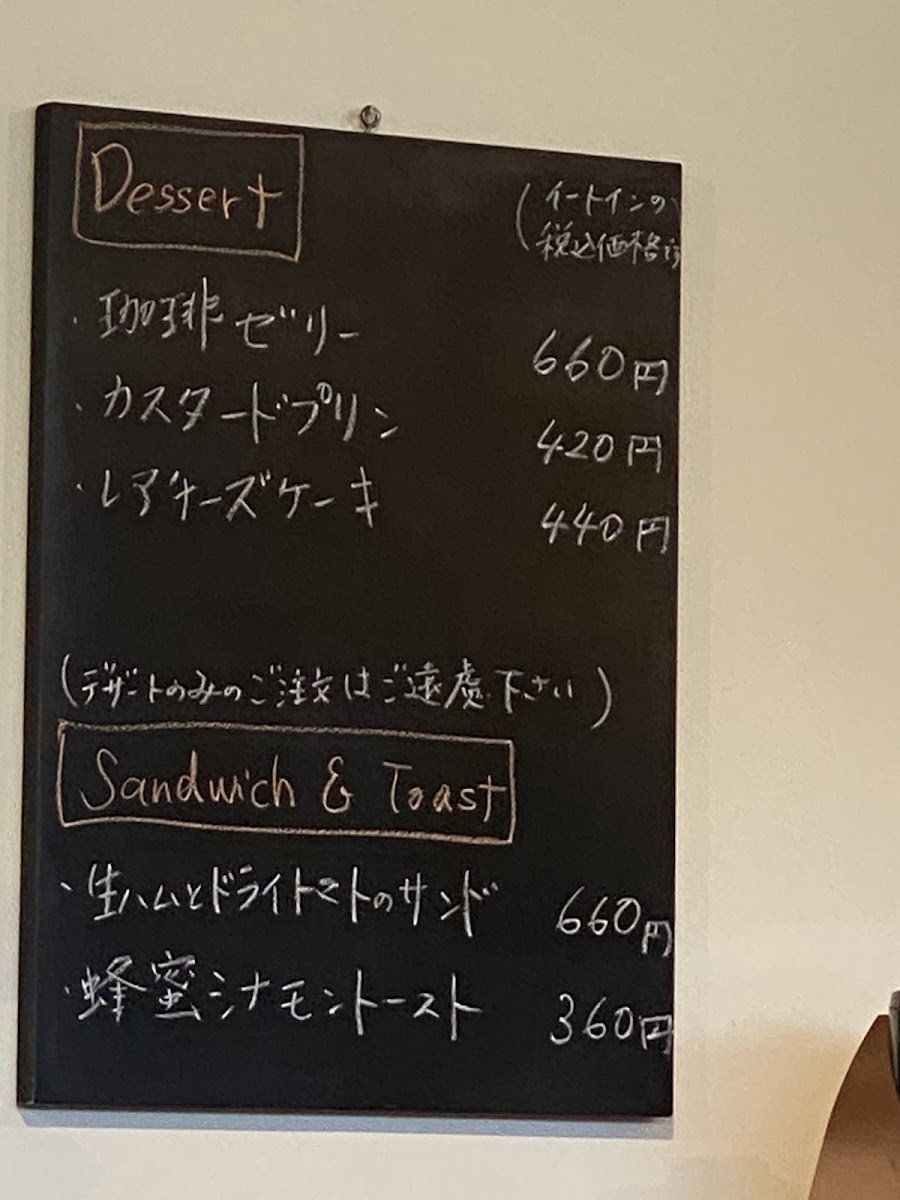 Dessert
(イートインの
税込価格です
・珈琲ゼリー 660円
・カスタードプリン 420円
・レアチーズケーキ 440円
(デザートのみのご注文はご遠慮下さい)
Sandwich & Toast
・生ハムとドライトマトのサンド 660円
・蜂蜜シナモントースト 360円